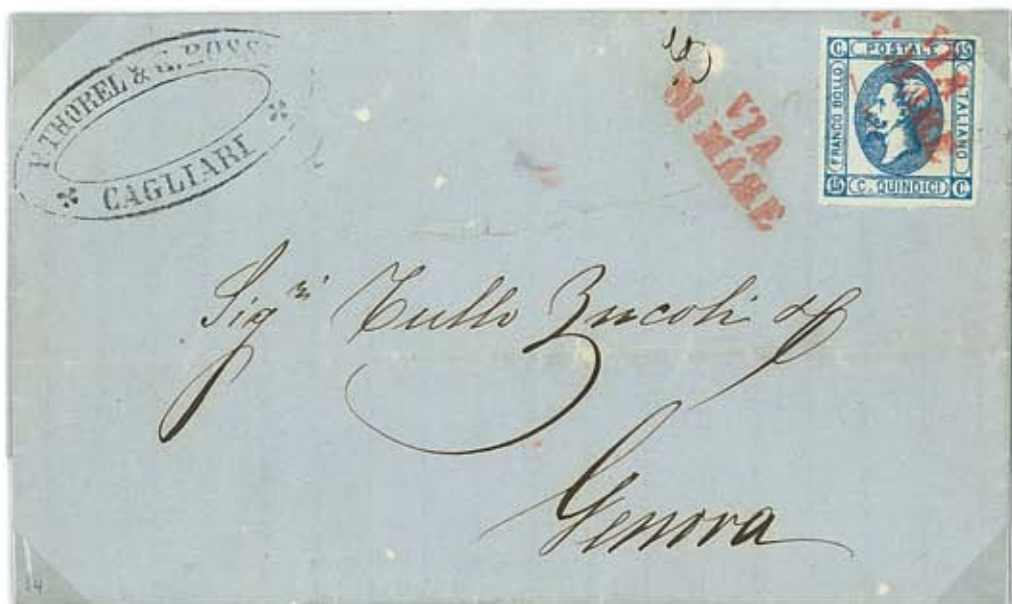 THOREL & G. ROSS
CAGLIARI
VIA
DI MARE
C. POSTALE 15
FRANCO BOLLO
ITALIANO
15 C. QUINDICI C.
VIA
Sigri Tullo Zucoli &
Genova
24